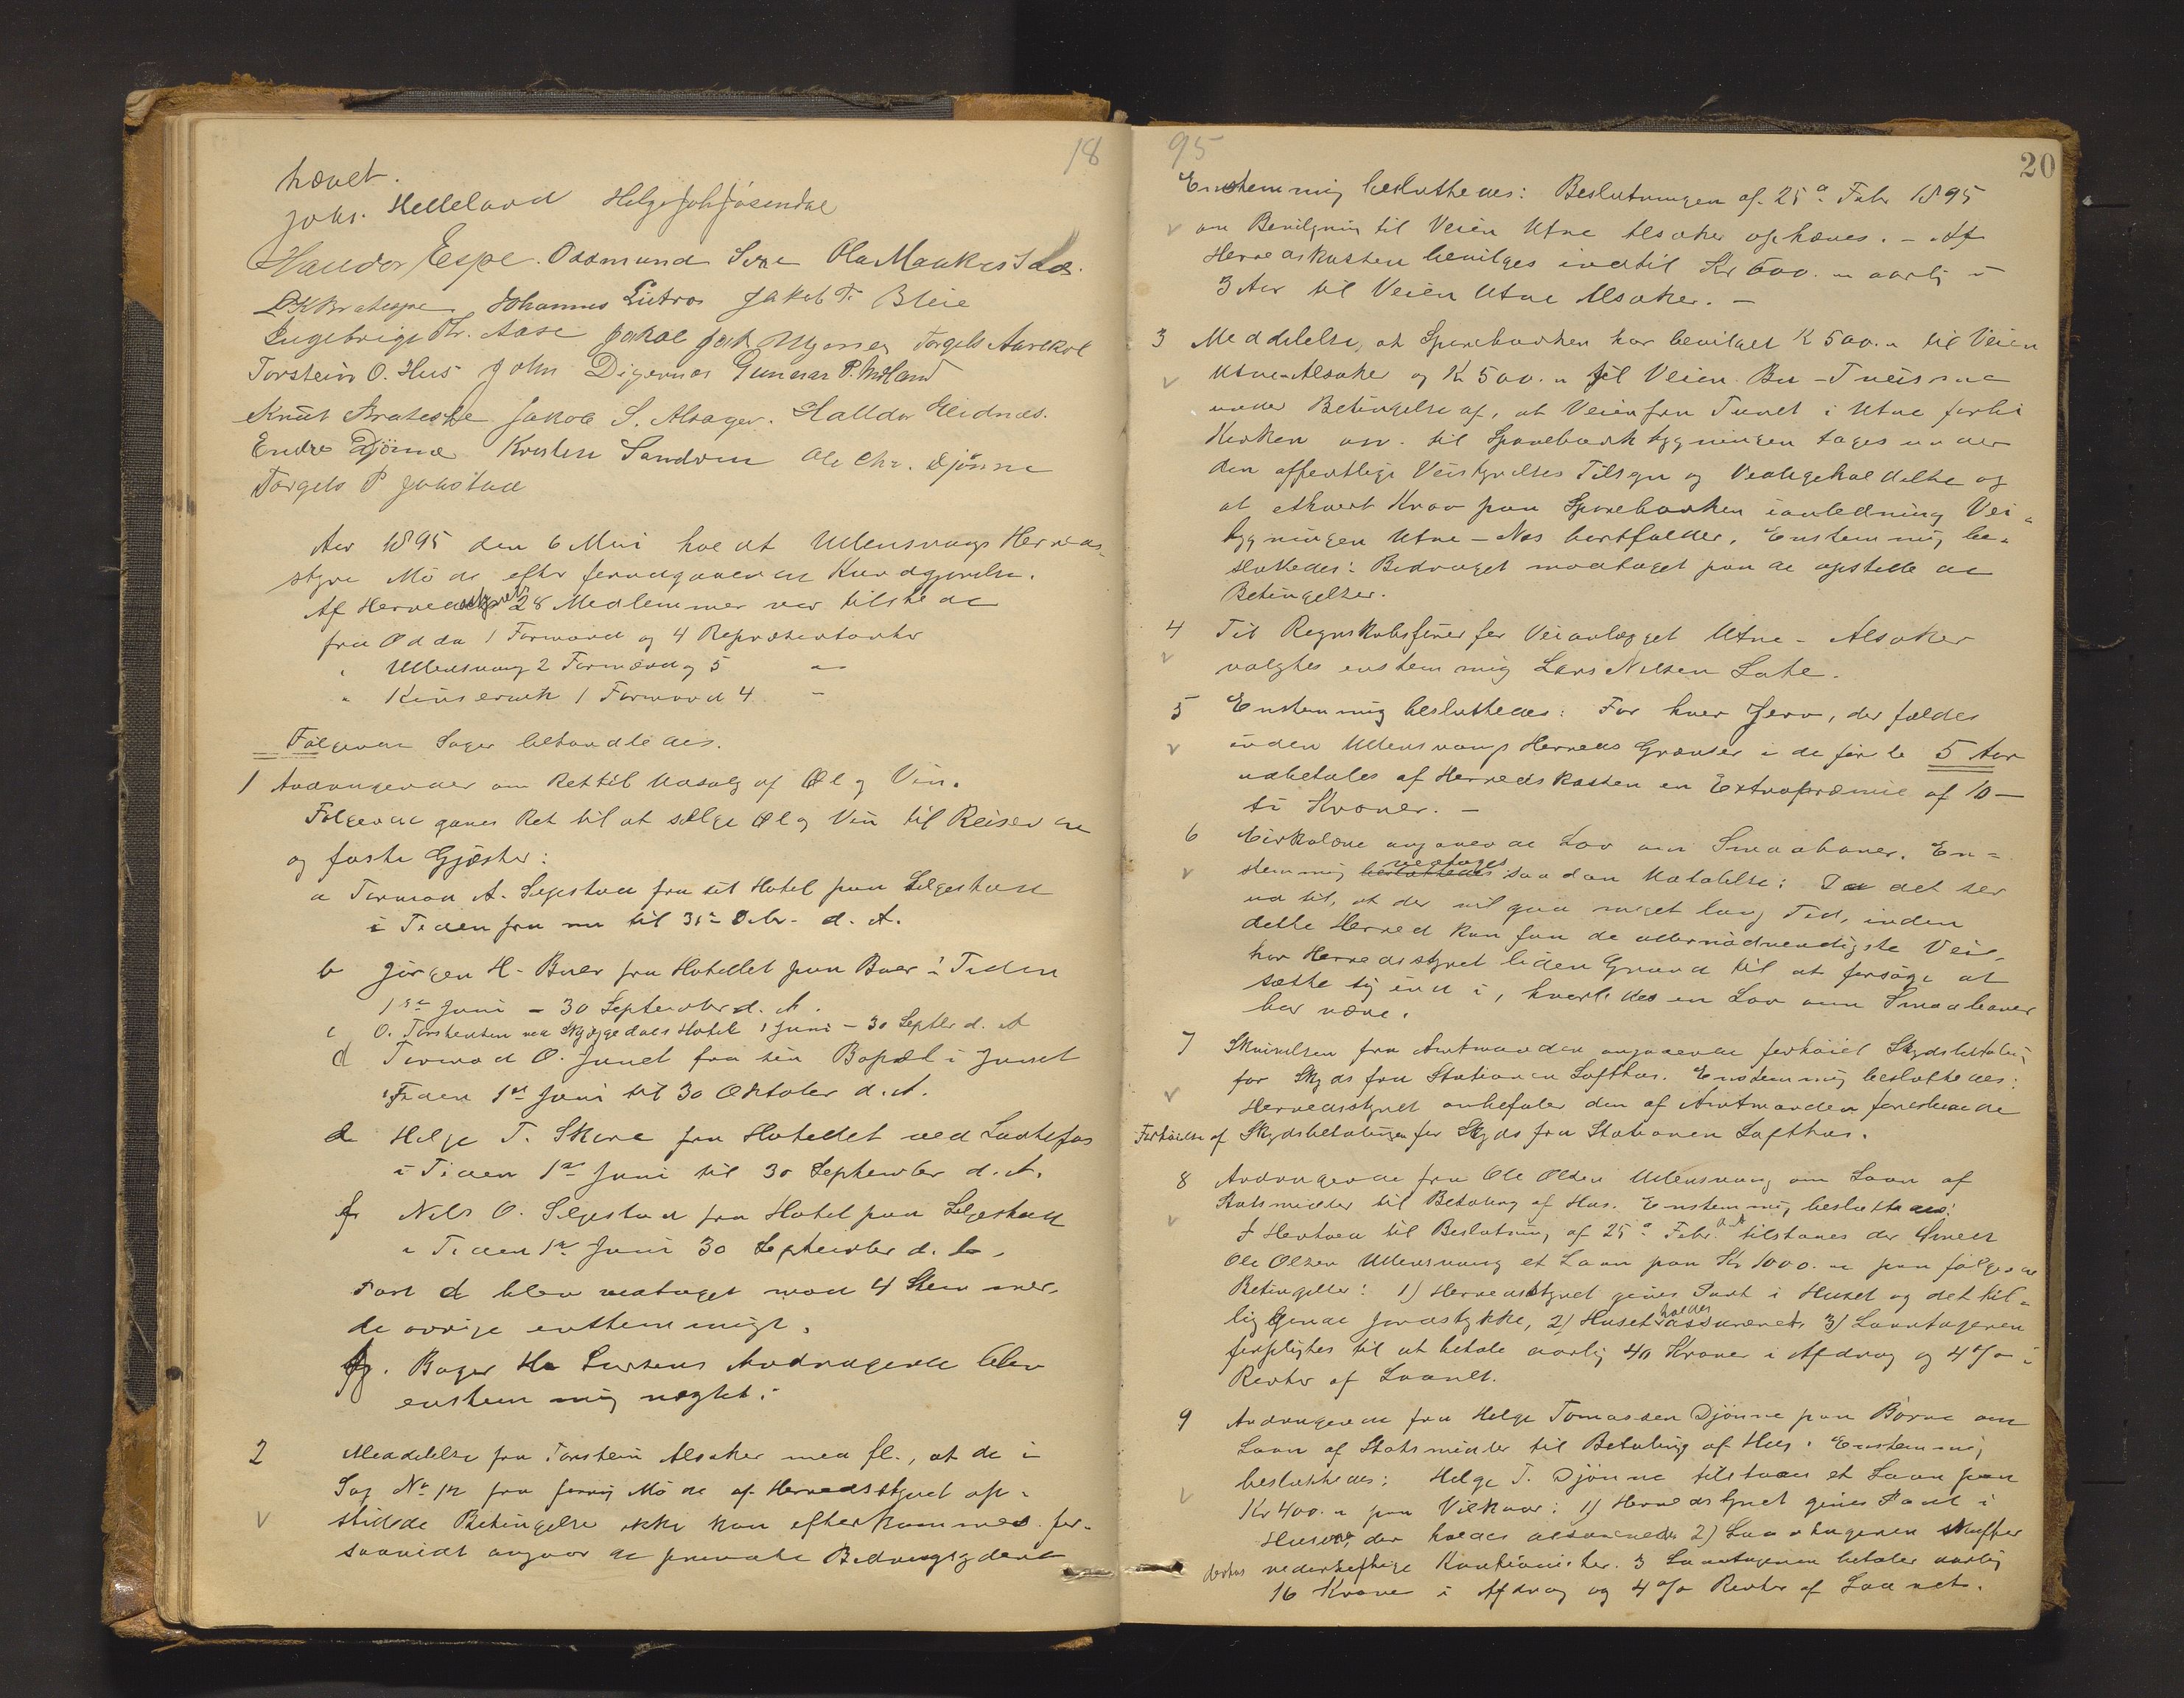 18
hævet.
Johs. Helleland Helge Joh Jåsendal
Halldor Espe. Oddmund Sexe Ola Maakestad.
Johannes Lutro Jakob T. Bleie
Ingebrigt Th. Aase Jakob Torgels Aarekol
Torstein O. Hus John Digernes Gunnar P.
Knut Bratespe Jakob S. Alsager. Halldor Eidnes.
Endre Djönne Kristen Sandven Ole Chr. Djönne
Torgels P Jaastad
Aar 1895 den 6 Mai holdt Ullensvangs Herreds-
styre Möde efter forudgaaende Kundgjørelse.
Af Herredsstyrets 28 Medlemmer var tilstede
fra Odda 1 Formand og 4 Repræsentanter
" Ullensvang 2 Formænd og 5 "
" Kinservik 1 Formand 4 "
Følgende Sager behandledes.
1 Andragender om Ret til Udsalg af Øl og Vin.
Følgende gaves Ret til at sælge Øl og Vin til Reisende
og faste Gjæster:
a Tormod A. Seljestad fra sit Hotel paa Seljestad
i Tiden fra nu til 31te Debr. d. A.
b Jørgen H. Buer fra Hotellet paa Buer i Tiden
1ste Juni – 30 September d. A.
c O. Torstensen ved Skjæggedals Hotel 1 Juni – 30 Septbr d. A
d Tormod O. Jundt fra sin Bopæl i Jundt
i Tiden 1ste Juni til 30 Oktober d. A.
e Helge T. Skare fra Hotellet ved Laatefos
i Tiden 1ste Juni til 30 September d. A.
f Nils O. Seljestad fra Hotel paa Seljestad
i Tiden 1ste Juni 30 September d. A.
Post d blev vedtaget mod 4 Stemmer,
de øvrige enstemmigt.
g. Bager H. Larsens Andragende blev
enstemmig nægtet.
2 Meddelelse fra Torstein Alsaker med fl., at de i
Sag No 12 fra forrig Möde af Herredsstyret op-
stillede Betingelse ikke kan efterkommes for-
saavidt angaar de private Bidragsydere
95
20
Enstemmig besluttedes: Beslutningen af 25de Febr 1895
om Bevilgning til Veien Utne Alsaker ophæves. – Af
Herredskassen bevilges indtil Kr 600. " aarlig i
3 Aar til Veien Utne Alsaker. –
3 Meddelelse, at Sparebanken har bevilget K 500. " til Veien
Utne–Alsaker og K 500. " til Veien Bu–Tveisme
under Betingelse af, at Veien fra Tunet i Utne forbi
Kirken osv. til Sparebankbygningen tages under
den offentlige Veistyrelses Tilsyn og Vedligeholdelse og
at ethvert Krav paa Sparebanken i anledning Vei-
bygningen Utne–Nes bortfalder. Enstemmig be-
sluttedes: Bidraget modtaget paa de opstillede
Betingelser.
4 Til Regnskabsfører for Veianlægget Utne – Alsaker
valgtes enstemmig Lars Nilsen Lote.
5 Enstemmig besluttedes: For hver Jerv, der fældes
inden Ullensvangs Herreds Grænser i de første 5 Aar
udbetales af Herredskassen en Extrapræmie af 10 –
ti Kroner. –
6 Cirkulære angaaende Lov om Smaabaner. En-
stemmig besluttedes vedtoges saadan Udtalelse: Da det ser
ud til, at der vil gaa meget lang Tid, inden
dette Herred kan faa de allernødvendigste Veie,
har Herredsstyret liden Grund til at forsøge at
sætte sig ind i, hvorledes en Lov om Smaabaner
bør være.
7 Skrivelsen fra Amtmanden angaaende forhøiet Skydsbetaling
for Skyds fra Stationen Lofthus. Enstemmig besluttedes:
Herredsstyret anbefaler den af Amtmanden foreslaaede
Forhøielse af Skydsbetalingen for Skyds fra Stationen Lofthus.
8 Andragende fra Ole Olsen Ullensvang om Laan af
Statsmidler til Betaling af Hus. Enstemmig besluttedes:
I Henhold til Beslutning af 25de Febr. d. A tilstaaes der Smed
Ole Olsen Ullensvang et Laan paa Kr 1000. " paa følgende
Betingelser: 1) Herredsstyret gives Pant i Huset og det til-
liggende Jordstykke, 2) Huset holdes assureret, 3) Laantageren
forpligtes til at betale aarlig 40 Kroner i Afdrag og 4 % i
Renter af Laanet.
9 Andragende fra Helge Tomassen Djönne paa Börve om
Laan af Statsmidler til Betaling af Hus. Enstemmig
besluttedes: Helge T. Djönne tilstaaes et Laan paa
Kr 400. " paa Vilkaar: 1) Herredsstyret gives Pant i
Husene, der holdes assurerede 2) Laantageren skaffer
desuden vederheftige Kautionister. 3 Laantageren betaler aarlig
16 Kroner i Afdrag og 4 % Renter af Laanet.